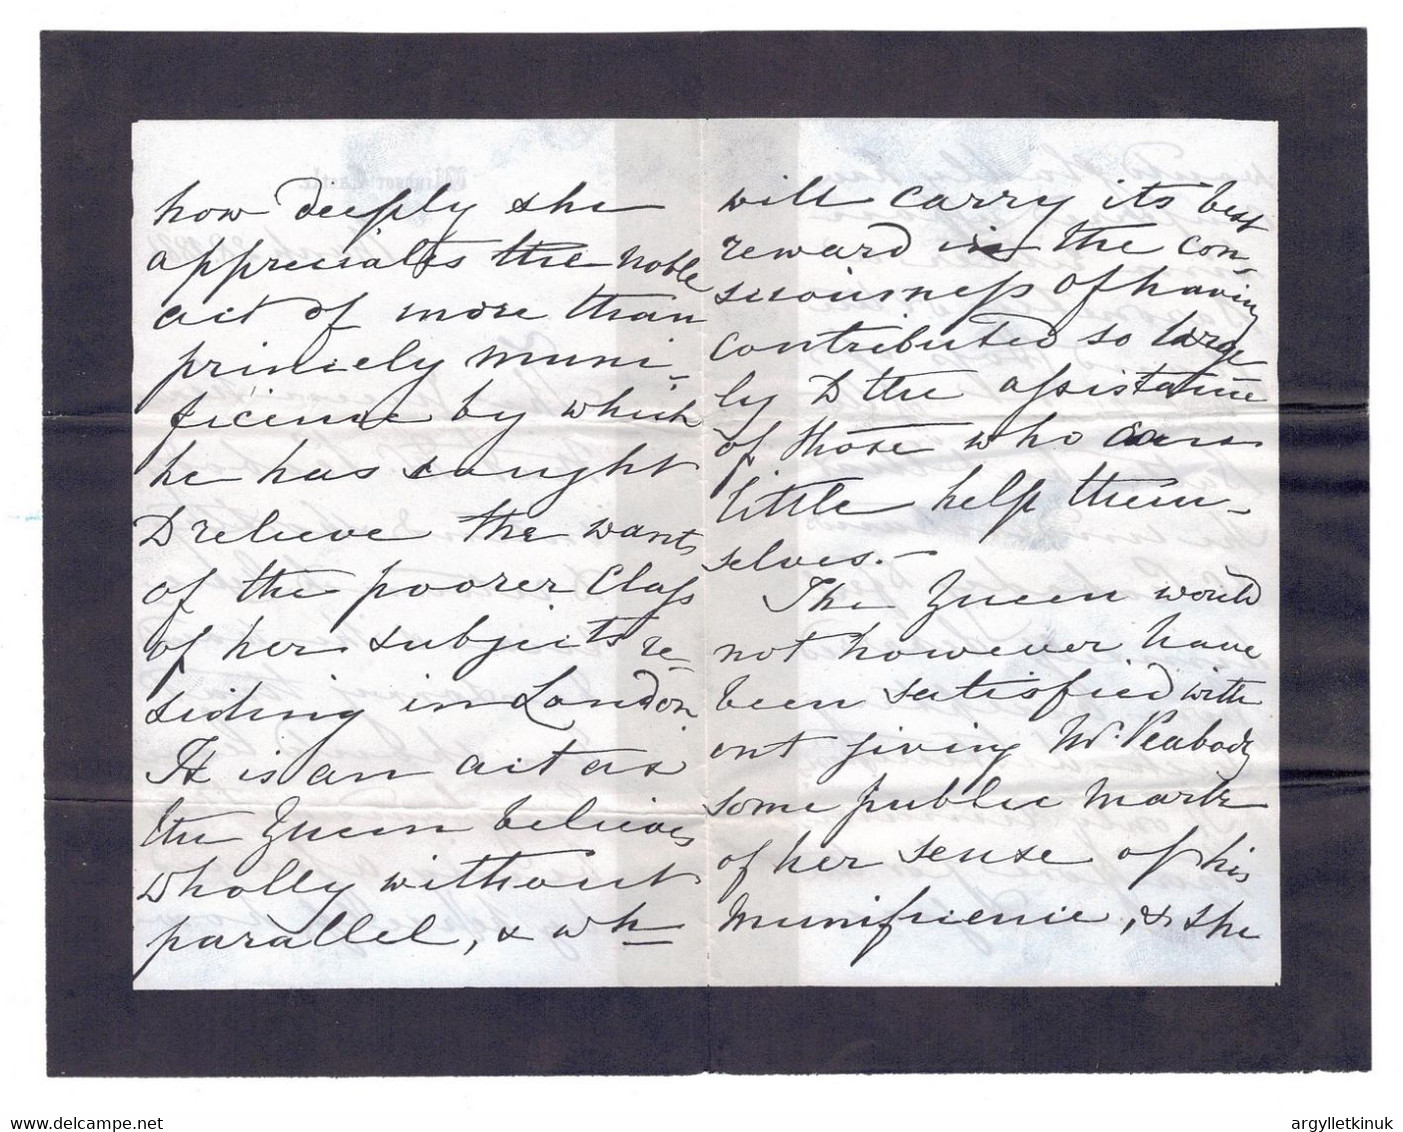 how deeply she
appreciates the noble
act of more than
princely muni-
ficence by which
he has sought
to relieve the wants
of the poorer Class
of her subjects re-
siding in London.
It is an act as
the Queen believes
wholly without
parallel, & wh
will carry its best
reward in the con-
sciousness of having
contributed so large
ly to the assistance
of those who can
little help them-
selves.-
The Queen would
not however have
been satisfied with
out giving Mr. Peabody
some public mark
of her sense of his
munificence, & she
www.delcampe.net
argyllletkinuk